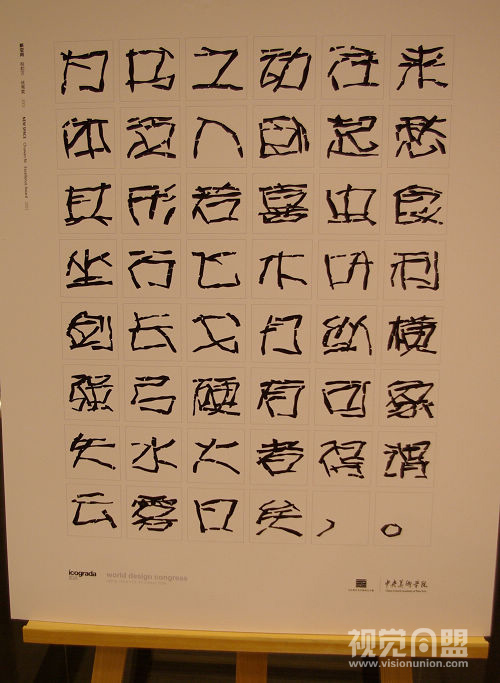 为书之动往来
体须入卧起愁
其形若喜虫食
坐行飞木叶利
剑长戈月纵横
强弓硬有可象
矢水火者得谓
云雾日矣，。
icograda
world design congress
中央美術学院
视觉同盟
www.visionunion.com